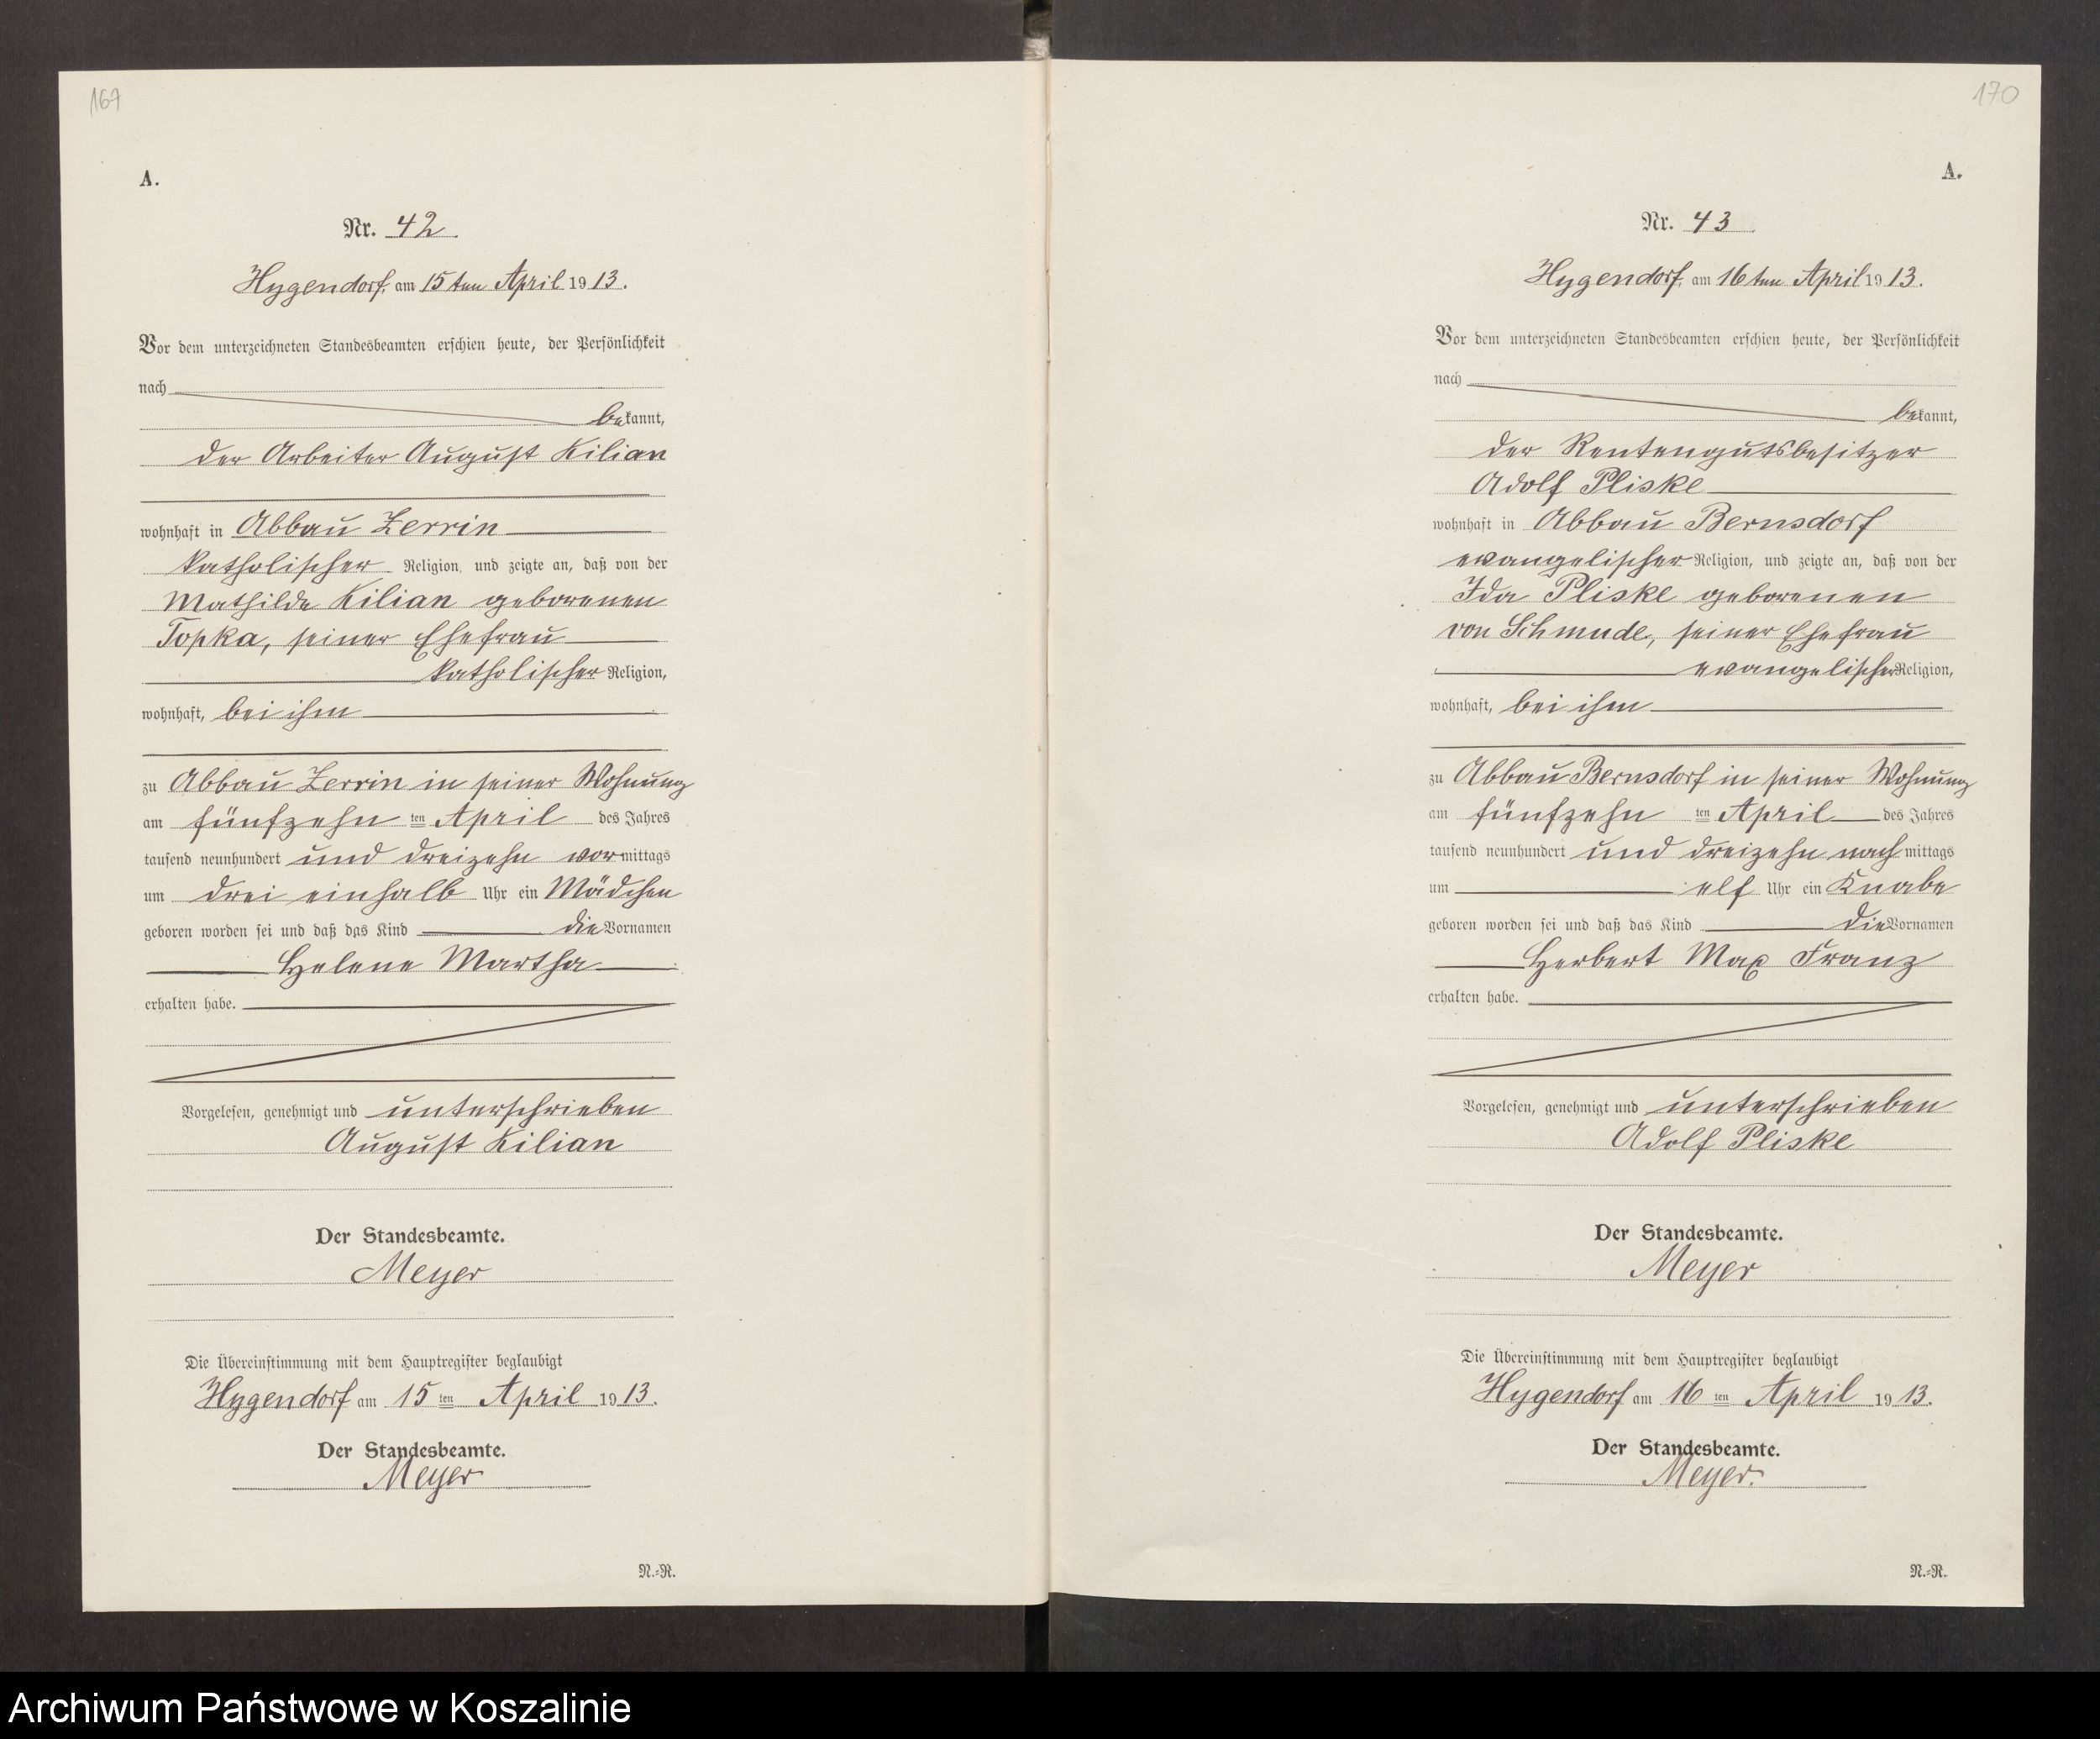 167
A.
Nr. 42.
Hygendorf, am 15ten April 1913.
Vor dem unterzeichneten Standesbeamten erschien heute, der Persönlichkeit
nach
bekannt,
der Arbeiter August Kilian
wohnhaft in Abbau Zerrin
katholischer Religion, und zeigte an, daß von der
Mathilde Kilian geborenen
Topka, seiner Ehefrau
katholischer Religion,
wohnhaft, bei ihm
zu Abbau Zerrin in seiner Wohnung
am fünfzehn ten April des Jahres
tausend neunhundert und dreizehn vormittags
um drei einhalb Uhr ein Mädchen
geboren worden sei und daß das Kind die Vornamen
Helene Martha
erhalten habe.
Vorgelesen, genehmigt und unterschrieben
August Kilian
Der Standesbeamte.
Meyer
Die Übereinstimmung mit dem Hauptregister beglaubigt
Hygendorf am 15 ten April 1913.
Der Standesbeamte.
Meyer
N.=R.
170
A.
Nr. 43
Hygendorf, am 16ten April 1913.
Vor dem unterzeichneten Standesbeamten erschien heute, der Persönlichkeit
nach
bekannt,
der Rentengutsbesitzer
Adolf Pliske
wohnhaft in Abbau Bernsdorf
evangelischer Religion, und zeigte an, daß von der
Ida Pliske geborenen
von Schmude, seiner Ehefrau
evangelischer Religion,
wohnhaft, bei ihm
zu Abbau Bernsdorf in seiner Wohnung
am fünfzehn ten April des Jahres
tausend neunhundert und dreizehn nachmittags
um elf Uhr ein Knabe
geboren worden sei und daß das Kind die Vornamen
Herbert Max Franz
erhalten habe.
Vorgelesen, genehmigt und unterschrieben
Adolf Pliske
Der Standesbeamte.
Meyer
Die Übereinstimmung mit dem Hauptregister beglaubigt
Hygendorf am 16 ten April 1913.
Der Standesbeamte.
Meyer.
N.=R.
Archiwum Państwowe w Koszalinie